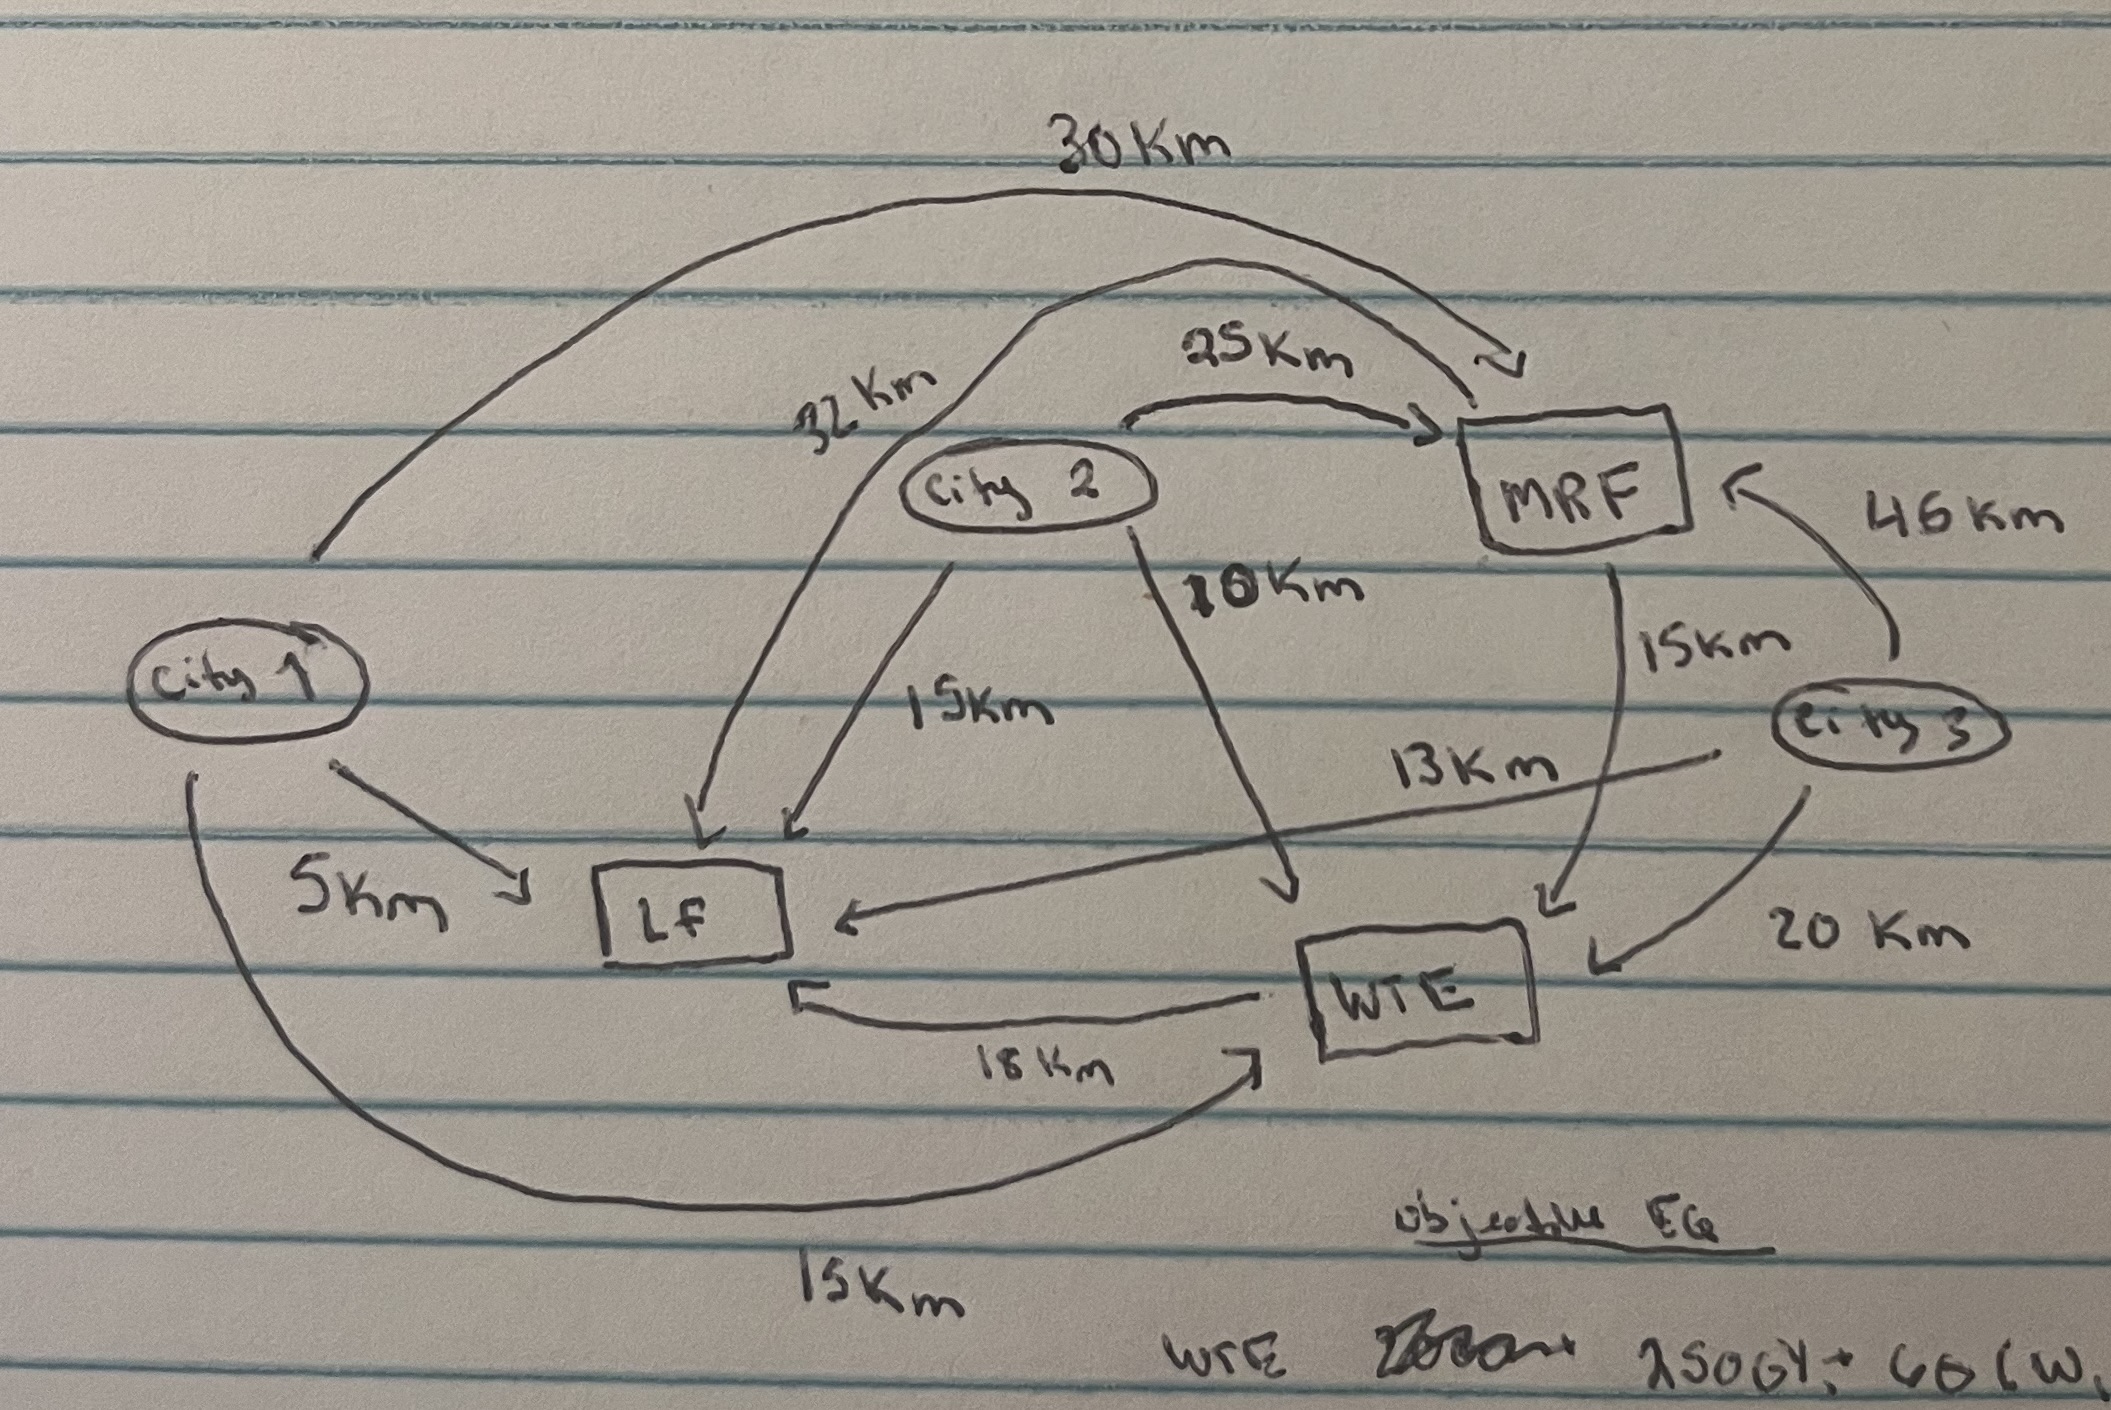 30 Km
25 Km
32 Km
City 2
MRF
46 Km
10 Km
15 Km
City 1
15 Km
City 3
13 Km
5 Km
LF
20 Km
WTE
18 Km
15 Km
Objective EQ
WTE